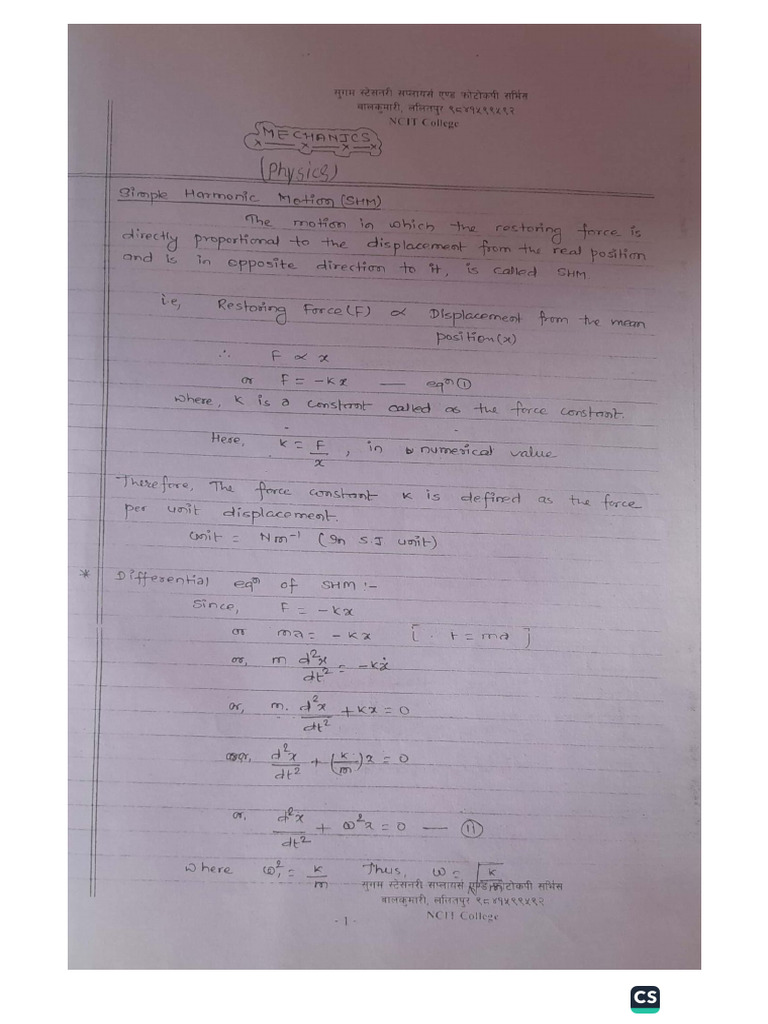 सुगम स्टेसनरी सप्लायर्स एण्ड फोटोकपी सर्भिस
बालकुमारी, ललितपुर ९८४१५९९५९२
NCIT College
MECHANICS
(Physics)
Simple Harmonic Motion (SHM)
The motion in which the restoring force is
directly proportional to the displacement from the real position
and is in opposite direction to it, is called SHM
i.e, Restoring Force(F) ∝ Displacement from the mean
position(x)
∴ F ∝ x
or F = -kx — eqⁿ ①
where, K is a constant called as the force constant.
Here, k = F/x, in numerical value
Therefore, The force constant K is defined as the force
per unit displacement.
Unit = Nm⁻¹ (In S.I unit)
* Differential eqⁿ of SHM :-
Since, F = -kx
or ma = -kx [∵ F = ma]
or, m d²x/dt² = -kx
or, m. d²x/dt² + kx = 0
or, d²x/dt² + (k/m)x = 0
or, d²x/dt² + ω²x = 0 — ⑪
where ω² = k/m Thus, ω = √k/m
सुगम स्टेसनरी सप्लायर्स एण्ड फोटोकपी सर्भिस
बालकुमारी, ललितपुर ९८४१५९९५९२
NCIT College
- 1 -
CS